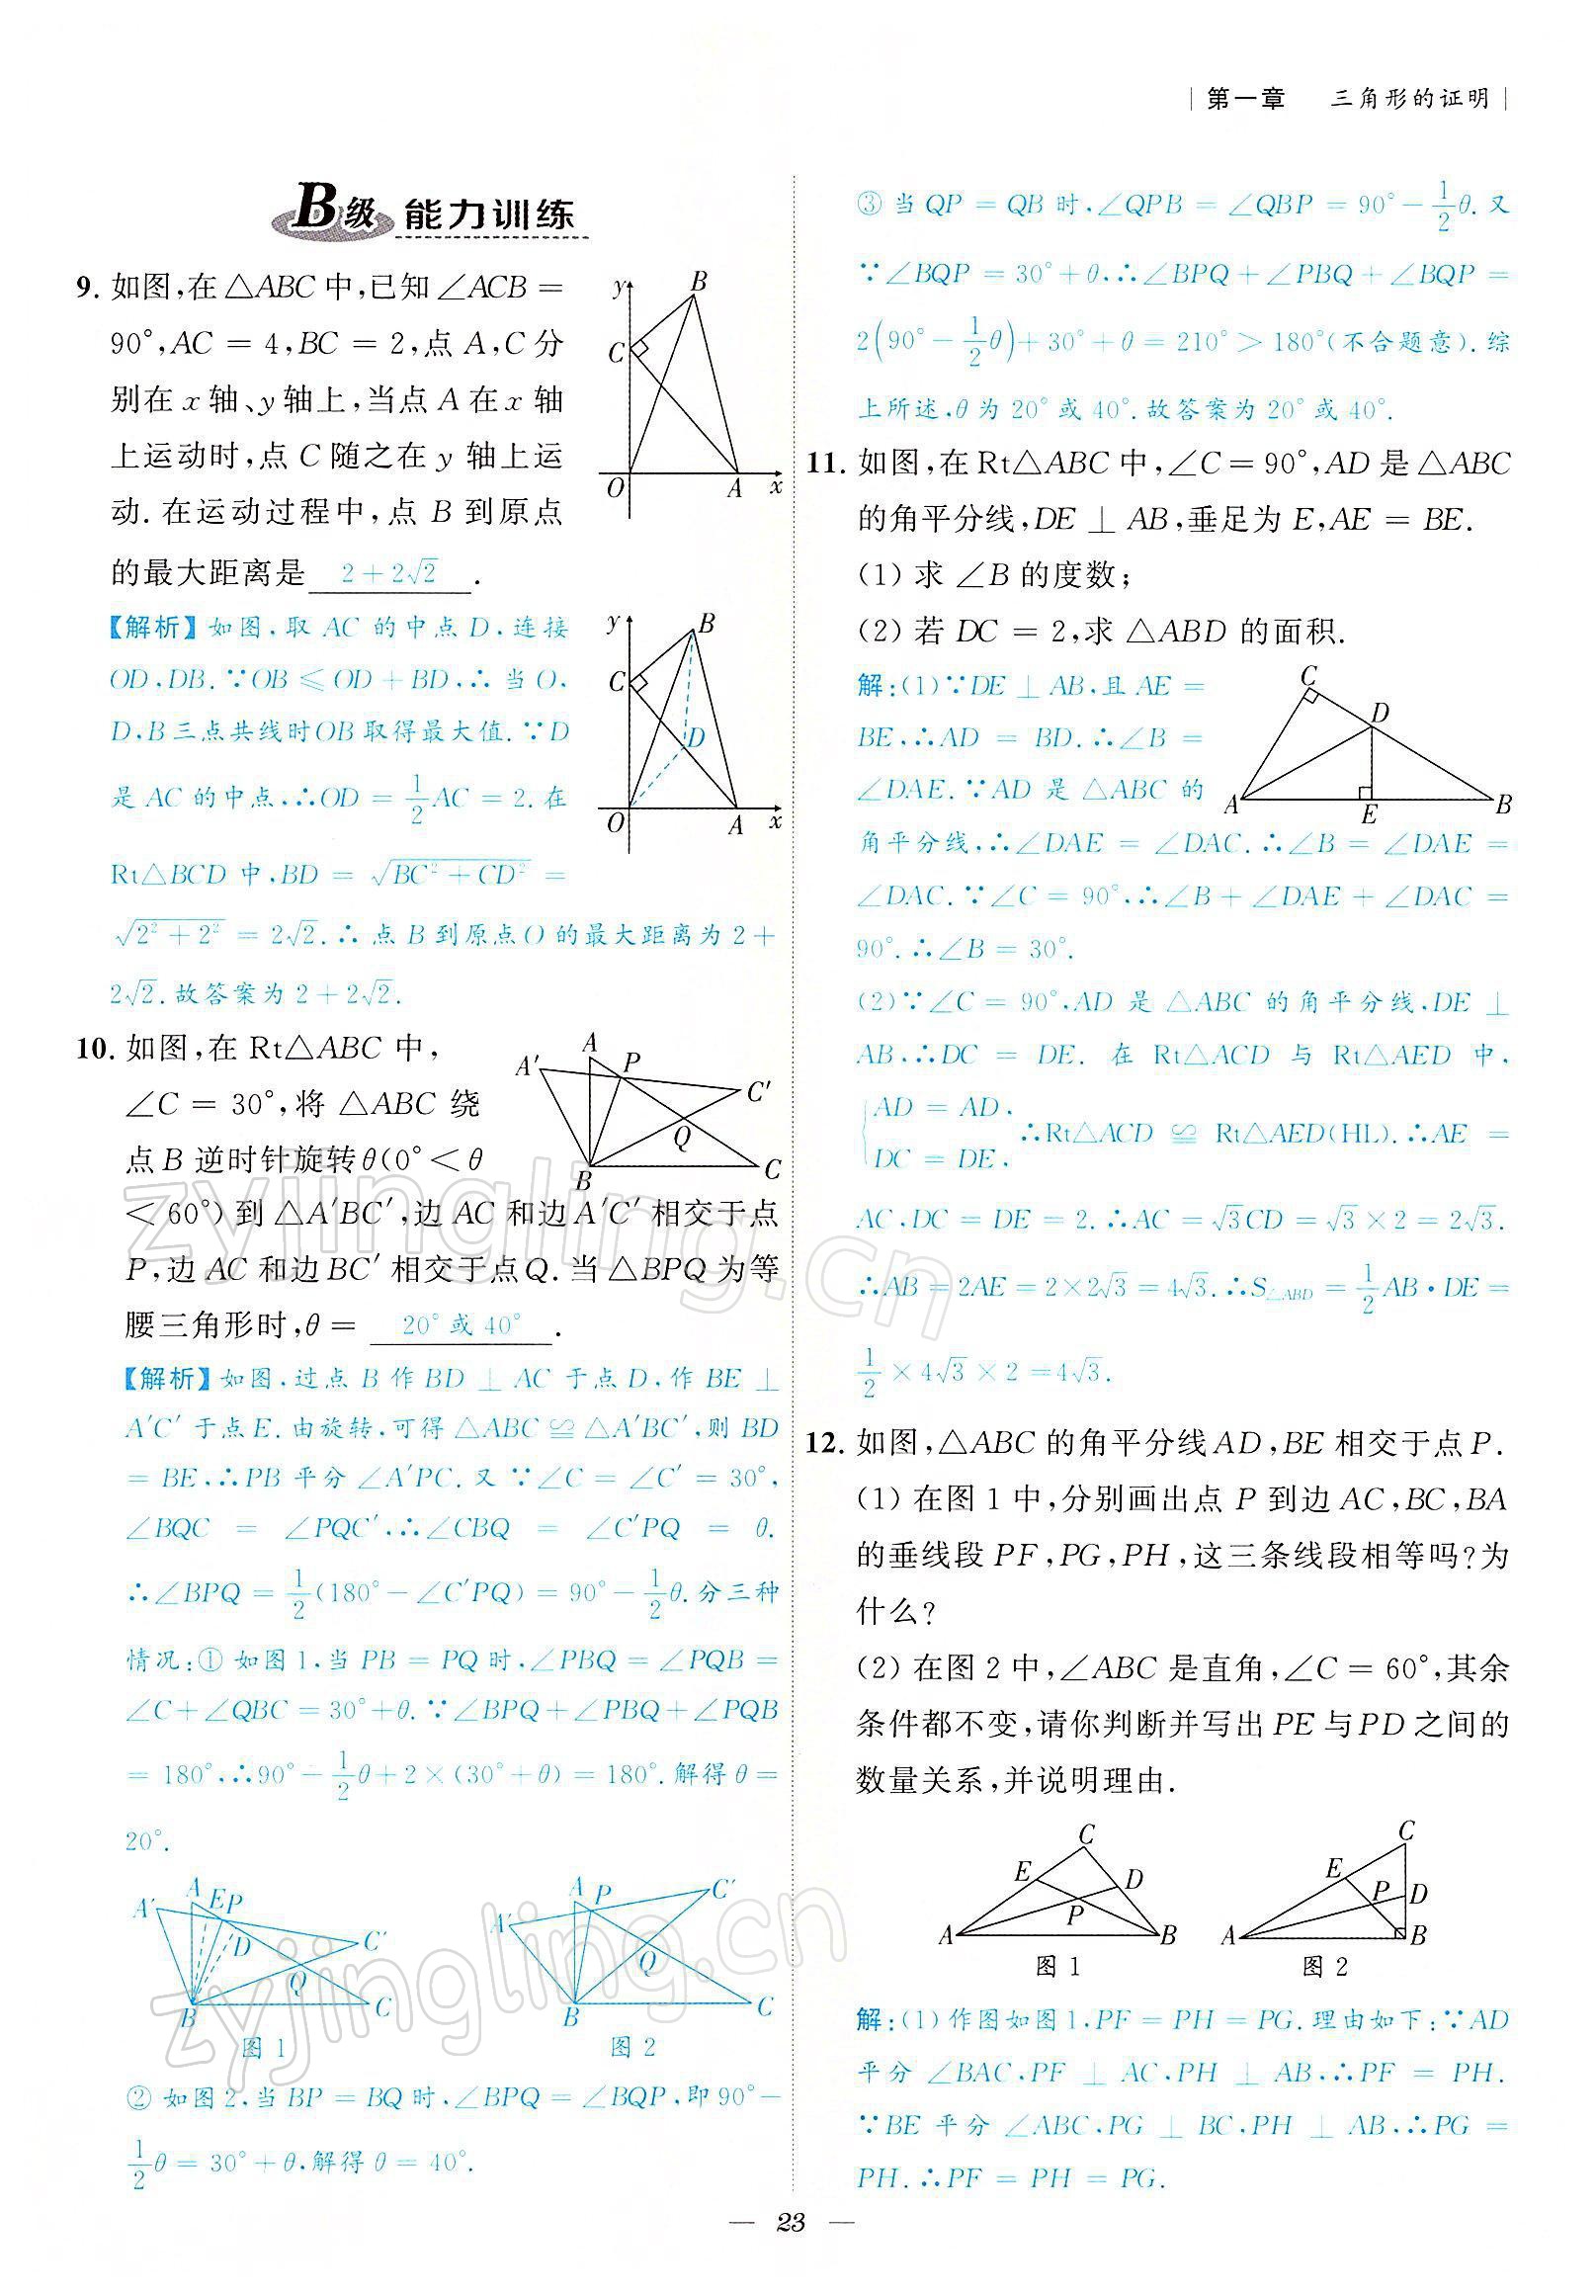 第一章 三角形的证明
B级 能力训练
9. 如图,在△ABC中,已知∠ACB=
90°,AC=4,BC=2,点A,C分
别在x轴、y轴上,当点A在x轴
上运动时,点C随之在y轴上运
动.在运动过程中,点B到原点
的最大距离是 2+2√2 .
y
B
C
O
A
x
【解析】如图,取AC的中点D,连接
OD,DB.∵OB≤OD+BD,∴当O,
D,B三点共线时OB取得最大值.∵D
是AC的中点,∴OD=1/2AC=2.在
Rt△BCD中,BD=√(BC²+CD²)=
√(2²+2²)=2√2.∴点B到原点O的最大距离为2+
2√2.故答案为2+2√2.
y
B
C
D
O
A
x
10. 如图,在Rt△ABC中,
∠C=30°,将△ABC绕
点B逆时针旋转θ(0°<θ
<60°)到△A′BC′,边AC和边A′C′相交于点
P,边AC和边BC′相交于点Q.当△BPQ为等
腰三角形时,θ= 20°或40° .
A′
A
P
C′
Q
B
C
【解析】如图,过点B作BD⊥AC于点D,作BE⊥
A′C′于点E.由旋转,可得△ABC≌△A′BC′,则BD
=BE,∴PB平分∠A′PC.又∵∠C=∠C′=30°,
∠BQC=∠PQC′,∴∠CBQ=∠C′PQ=θ.
∴∠BPQ=1/2(180°-∠C′PQ)=90°-1/2θ.分三种
情况:①如图1,当PB=PQ时,∠PBQ=∠PQB=
∠C+∠QBC=30°+θ.∵∠BPQ+∠PBQ+∠PQB
=180°,∴90°-1/2θ+2×(30°+θ)=180°.解得θ=
20°.
A′
A
E
P
D
C′
Q
B
C
图1
A′
A
P
C′
Q
B
C
图2
②如图2,当BP=BQ时,∠BPQ=∠BQP,即90°-
1/2θ=30°+θ,解得θ=40°.
③当QP=QB时,∠QPB=∠QBP=90°-1/2θ.又
∵∠BQP=30°+θ,∴∠BPQ+∠PBQ+∠BQP=
2(90°-1/2θ)+30°+θ=210°>180°(不合题意).综
上所述,θ为20°或40°.故答案为20°或40°.
11. 如图,在Rt△ABC中,∠C=90°,AD是△ABC
的角平分线,DE⊥AB,垂足为E,AE=BE.
(1)求∠B的度数;
(2)若DC=2,求△ABD的面积.
解:(1)∵DE⊥AB,且AE=
BE,∴AD=BD.∴∠B=
∠DAE.∵AD是△ABC的
角平分线,∴∠DAE=∠DAC.∴∠B=∠DAE=
∠DAC.∵∠C=90°,∴∠B+∠DAE+∠DAC=
90°.∴∠B=30°.
C
D
A
E
B
(2)∵∠C=90°,AD是△ABC的角平分线,DE⊥
AB,∴DC=DE.在Rt△ACD与Rt△AED中,
{AD=AD,
DC=DE,
∴Rt△ACD≌Rt△AED(HL).∴AE=
AC,DC=DE=2.∴AC=√3CD=√3×2=2√3.
∴AB=2AE=2×2√3=4√3.∴S△ABD=1/2AB·DE=
1/2×4√3×2=4√3.
12. 如图,△ABC的角平分线AD,BE相交于点P.
(1)在图1中,分别画出点P到边AC,BC,BA
的垂线段PF,PG,PH,这三条线段相等吗?为
什么?
(2)在图2中,∠ABC是直角,∠C=60°,其余
条件都不变,请你判断并写出PE与PD之间的
数量关系,并说明理由.
C
E
D
P
A
B
图1
C
E
P
D
A
B
图2
解:(1)作图如图1,PF=PH=PG.理由如下:∵AD
平分∠BAC,PF⊥AC,PH⊥AB,∴PF=PH.
∵BE平分∠ABC,PG⊥BC,PH⊥AB,∴PG=
PH.∴PF=PH=PG.
— 23 —
zyjingling.cn
zyjingling.cn